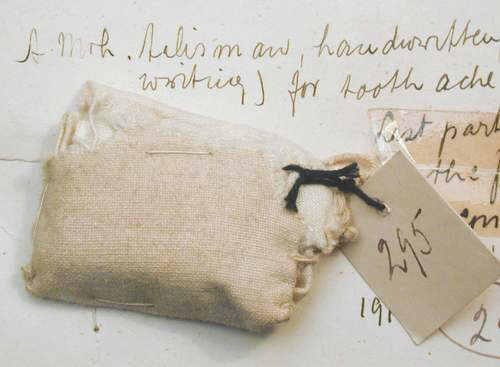 A Moh. talisman, handwritten
writing) for tooth ache
Last part
the
295
191